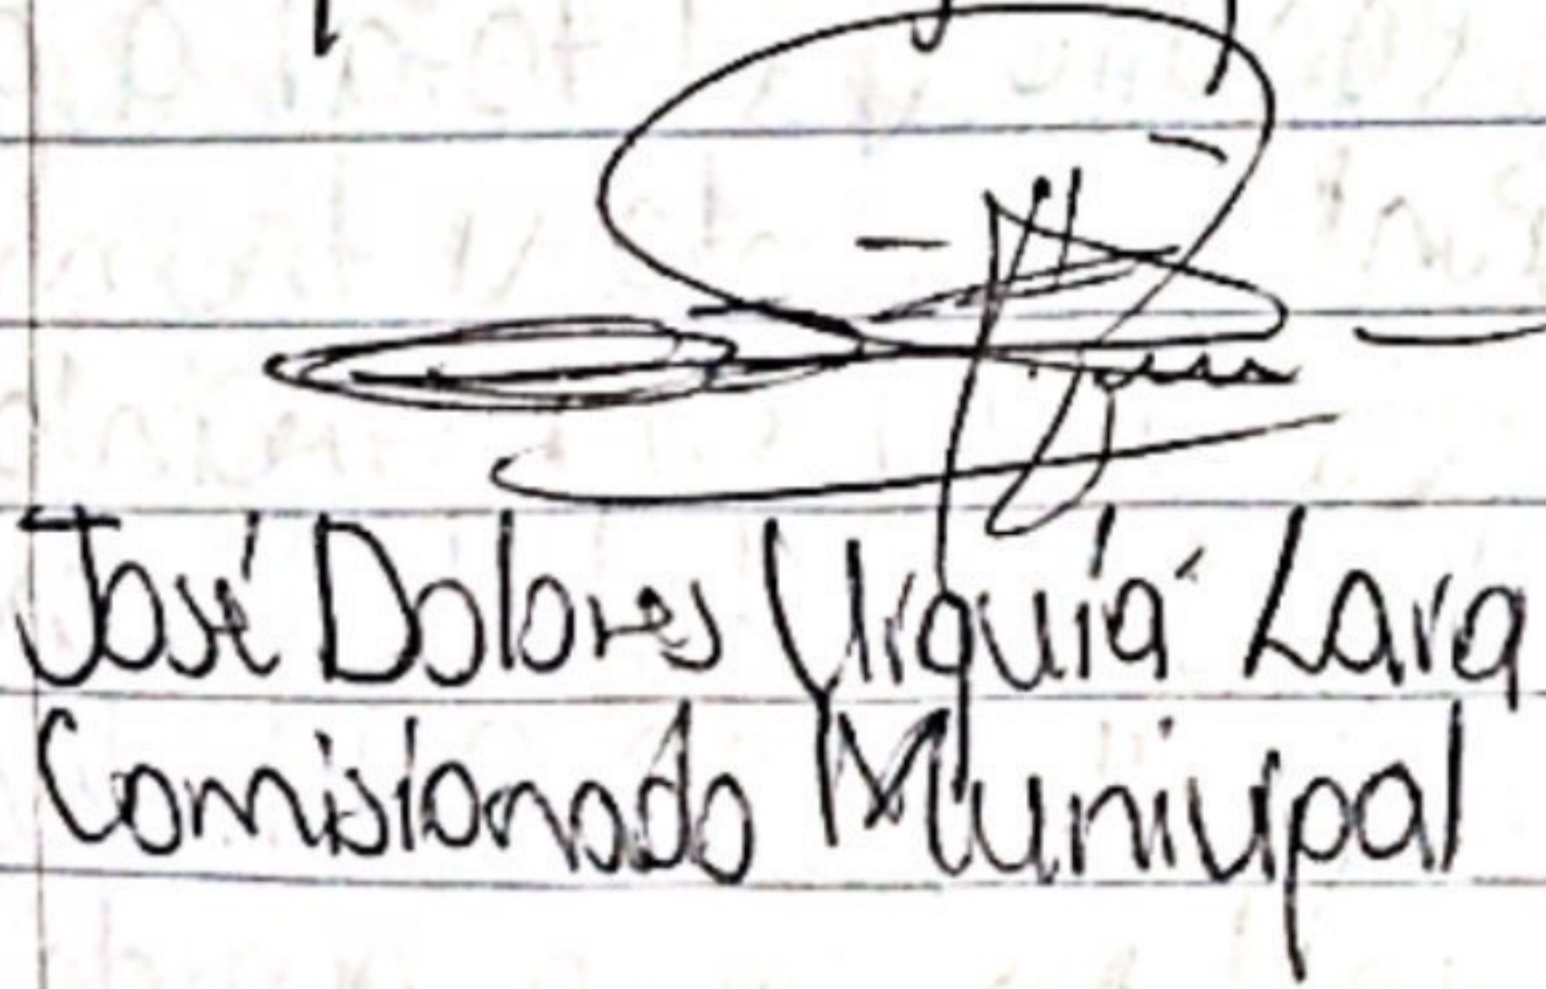 José Dolores Urquía Lara
Comisionado Municipal